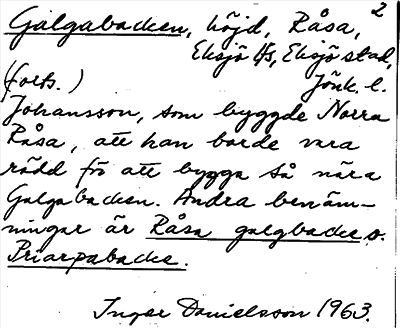 2
Galgabacken, höjd, Råsa,
Eksjö lfs, Eksjö stad,
(forts.) Jönk. l.
Johansson, som byggde Norra
Råsa, att han borde vara
rädd fö att bygga så nära
Galgabacken. Andra benäm-
ningar är Råsa galgbacke o.
Priarpabacke.
Inger Danielsson 1963.